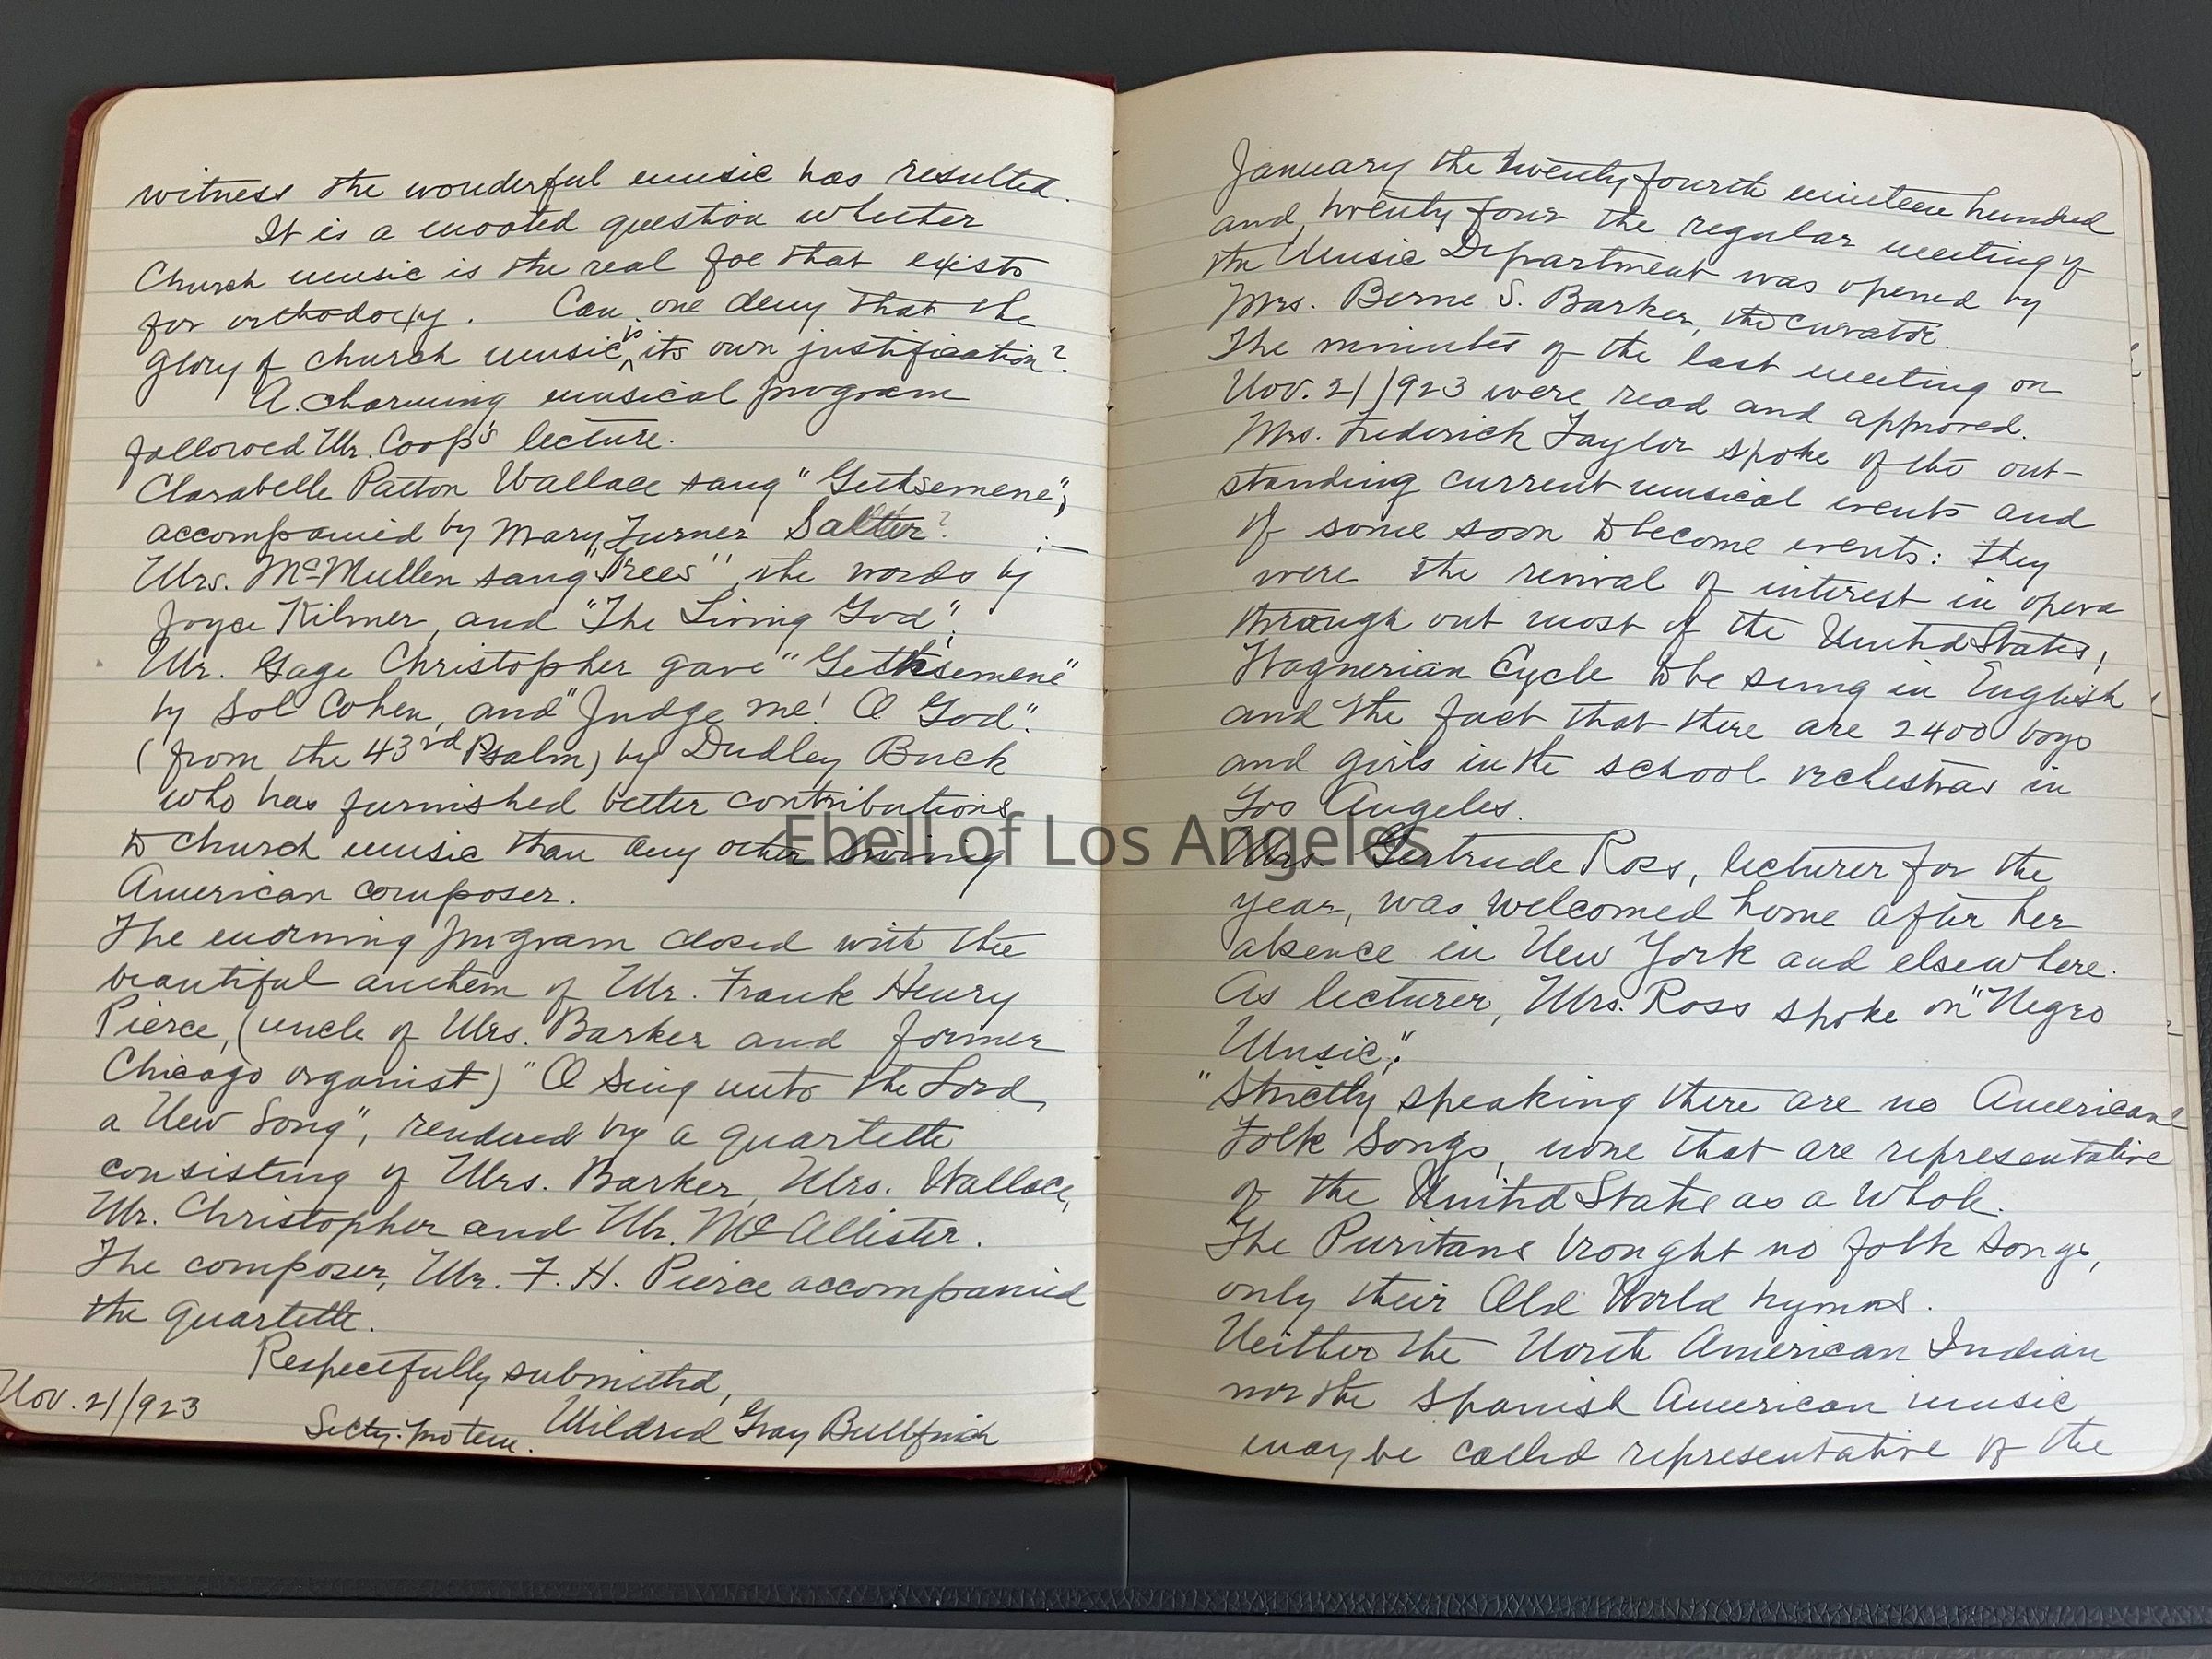 witness the wonderful music has resulted.
It is a mooted question whether
Church music is the real foe that exists
for orthodoxy. Can one deny that the
glory of church music is its own justification?
A charming musical program
followed Mr. Coop's lecture.
Clarabelle Patton Wallace sang "Gethsemene",
accompanied by Mary Turner Salter? :—
Mrs. McMullen sang "Trees", the words by
Joyce Kilmer, and "The Living God".
Mr. Gage Christopher gave "Gethsemene"
by Sol Cohen, and "Judge me! O God".
(from the 43rd Psalm) by Dudley Buck
who has furnished better contributions
to church music than any other living
American composer.
The morning program closed with the
beautiful anthem of Mr. Frank Henry
Pierce, (uncle of Mrs. Barker and former
Chicago organist) "O Sing unto the Lord,
a New Song", rendered by a quartette
consisting of Mrs. Barker, Mrs. Wallace,
Mr. Christopher and Mr. McAllister.
The composer, Mr. F. H. Pierce accompanied
the quartette.
Respectfully submitted,
Nov. 21/1923
Secty. pro tem. Mildred Gray
January the twenty fourth nineteen hundred
and twenty four the regular meeting of
the Music Department was opened by
Mrs. Berne S. Barker, the curator.
The minutes of the last meeting on
Nov. 21/1923 were read and approved.
Mrs. Frederick Taylor spoke of the out-
standing current musical events and
of some soon to become events: they
were the revival of interest in opera
through out most of the United States;
Wagnerian Cycle to be sung in English
and the fact that there are 2400 boys
and girls in the school orchestras in
Los Angeles.
Mrs. Gertrude Ross, lecturer for the
year, was welcomed home after her
absence in New York and elsewhere.
As lecturer, Mrs. Ross spoke on "Negro
Music".
"Strictly speaking there are no American
Folk Songs, none that are representative
of the United States as a Whole.
The Puritans brought no folk songs,
only their Old World hymns.
Neither the North American Indian
nor the Spanish American music
may be called representative of the
Ebell of Los Angeles